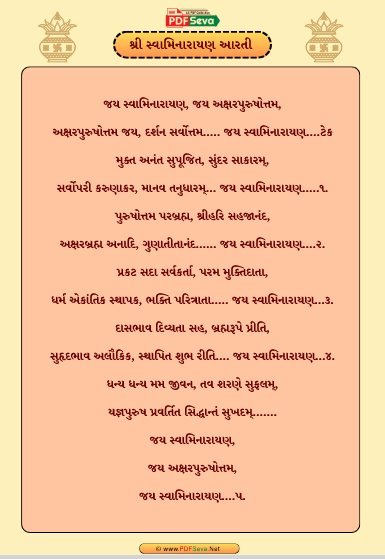 PDFSeva
શ્રી સ્વામિનારાયણ આરતી
જય સ્વામિનારાયણ, જય અક્ષરપુરુષોત્તમ,
અક્ષરપુરુષોત્તમ જય, દર્શન સર્વોત્તમ..... જય સ્વામિનારાયણ....ટેક
મુક્ત અનંત સુપૂજિત, સુંદર સાકારમ્,
સર્વોપરી કરુણાકર, માનવ તનુધારમ્... જય સ્વામિનારાયણ.....૧.
પુરુષોત્તમ પરબ્રહ્મ, શ્રીહરિ સહજાનંદ,
અક્ષરબ્રહ્મ અનાદિ, ગુણાતીતાનંદ...... જય સ્વામિનારાયણ....૨.
પ્રકટ સદા સર્વકર્તા, પરમ મુક્તિદાતા,
ધર્મ એકાંતિક સ્થાપક, ભક્તિ પરિત્રાતા..... જય સ્વામિનારાયણ...૩.
દાસભાવ દિવ્યતા સહ, બ્રહ્મરૂપે પ્રીતિ,
સુહૃદભાવ અલૌકિક, સ્થાપિત શુભ રીતિ.... જય સ્વામિનારાયણ...૪.
ધન્ય ધન્ય મમ જીવન, તવ શરણે સુફલમ્,
યજ્ઞપુરુષ પ્રવર્તિત સિદ્ધાન્તં સુખદમ્.......
જય સ્વામિનારાયણ,
જય અક્ષરપુરુષોત્તમ,
જય સ્વામિનારાયણ....૫.
© www.PDFSeva.Net